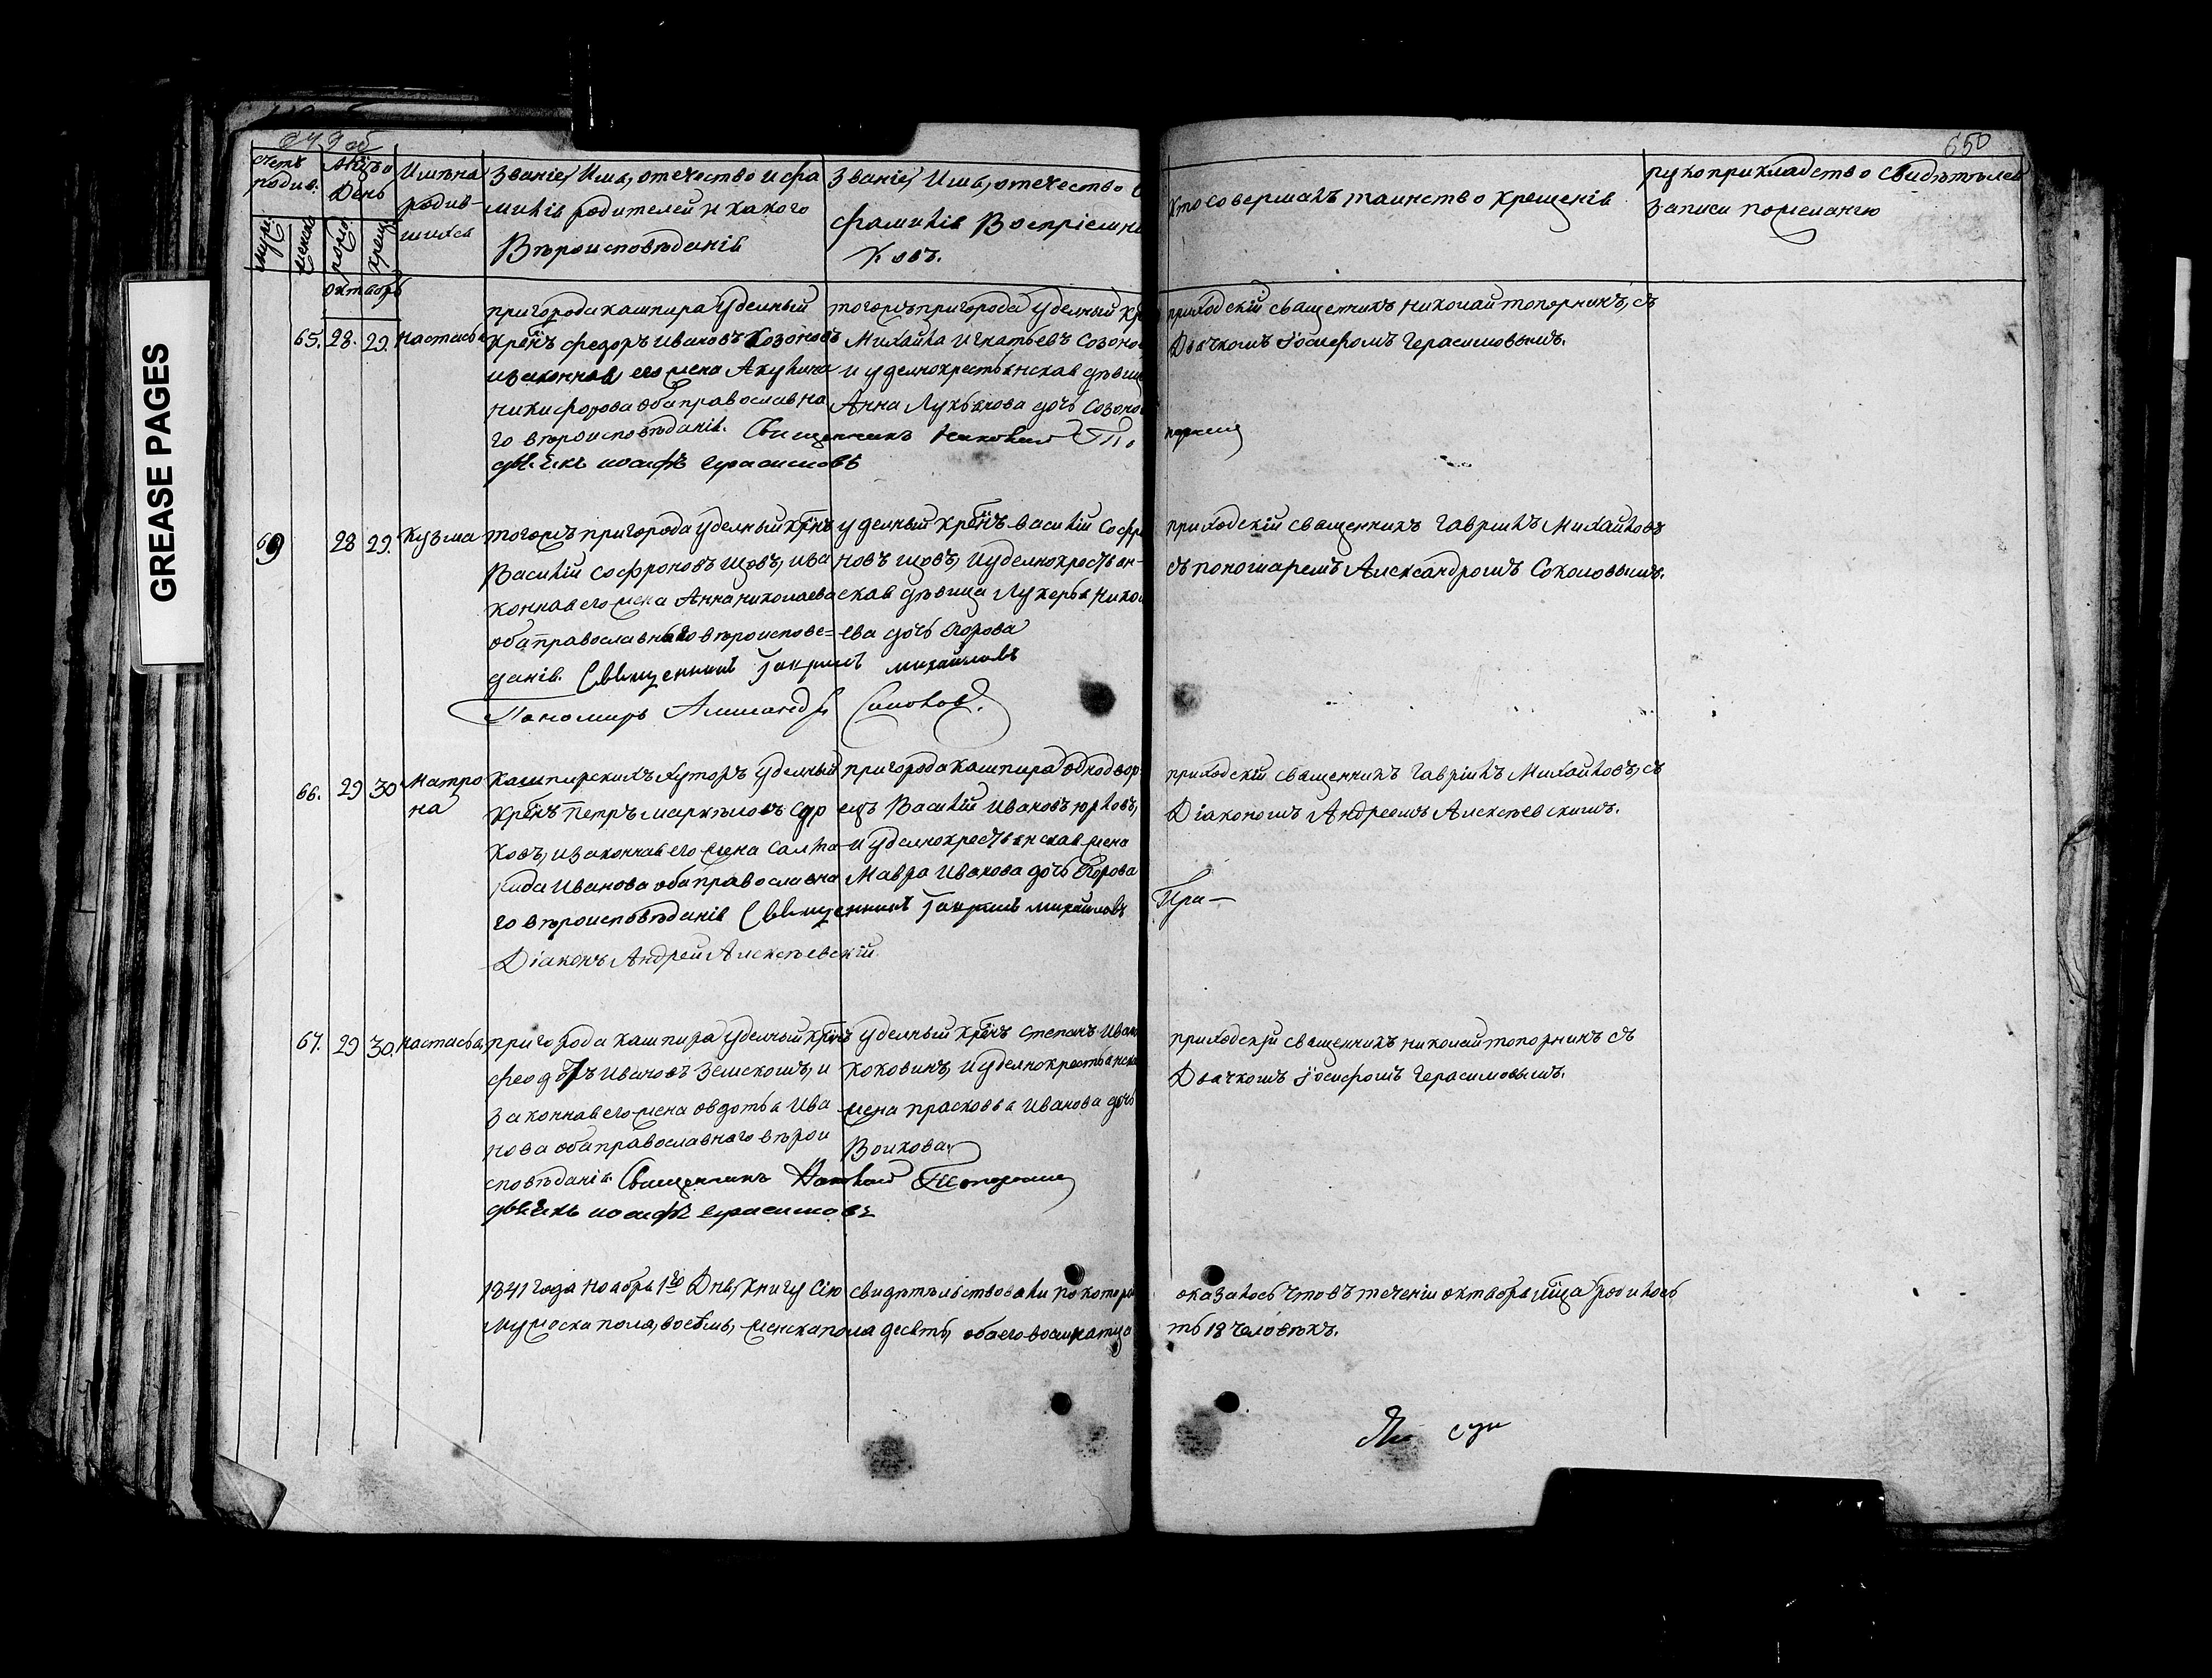 GREASE PAGES
649 об
650
счетъ родив.
муже.
женска
Мѣсяцъ и День
рожд.
крещ.
Имѣна родив-
шихся
Званіе, Имя, отечество и фа
милія родителей и какого
Вѣроисповѣданія
Званіе, Имя, отечество
фамилія Воспріемни
ковъ.
Кто совершалъ таинство крещенія
рукоприкладство свидѣтѣлей
записи по желанію
октябрь
65. 28. 29. Настасья
пригорода кашпира Удельный
крѣнъ федоръ Ивановъ Созоновъ
и законная его жена Акулина
никифорова оба православна
го вѣроисповѣданія. Священникъ Николай То
дьячекъ иосифъ герасимовъ
тогожъ пригорода удельный кр
Михайла Игнатьевъ Созоно
и удельнокрестьянская дѣвица
Анна Лукьянова дочь Созоно
приходскій священникъ николай топорнинъ, съ
Дьячкомъ Іосифомъ Герасимовымъ.
порнин
69 28 29. Кузма
тогожъ пригорода удельный крѣнъ
Василій софроновъ щовъ, и за
конная его жена Анна николаева
оба православнаго вѣроиспове=
данія. Священникъ Гавриилъ михайловъ
Пономарь Александръ Соколов.
удельный крѣнъ василій Софро
новъ щовъ, и удельнокрестьян-
ская дѣвица Лукерья Никол
ева дочь Егорова
приходскій священникъ гавріилъ Михайловъ
съ пономаремъ Александромъ Соколовымъ.
66. 29 30 Матро
на
Кашпирскихъ хуторъ удельный
крѣнъ Петръ маркѣловъ Сур
ковъ, и законная его жена Сала
кида Иванова оба православна
го вѣроисповѣданія Священникъ Гавриилъ михайловъ
Діаконъ Андрей Алексѣевскій
пригорода кашпира однодвор
ецъ Василій Ивановъ юрловъ,
и удельнокрестьянская жена
Мавра Иванова дочь Егорова
приходскій священникъ гавріилъ Михайловъ, съ
Діакономъ Андреемъ Алексѣевскимъ.
67. 29 30. Настасья
пригорода кашпира удельный крѣнъ
феодоръ Ивановъ Земскомъ, и
законная его жена овдотья Ива
нова оба православного вѣрои
сповѣданія Священникъ Николай Топорнин
дьячекъ иосифъ герасимовъ
удельный крѣнъ степанъ Ивано
коковинъ, и удельнокрестьянска
жена прасковья Иванова дочь
Волкова.
приходскій священникъ николай топорнинъ съ
Дьячкомъ Іосифомъ Герасимовымъ.
1841 года ноября 1го Дня, книгу сію свидѣтельствовали по которо
оказалось что въ теченіи октября мѣца родилось
мужска пола, восѣмь, женска пола десять, обаего восимнатцо
ть 18 человѣкъ.